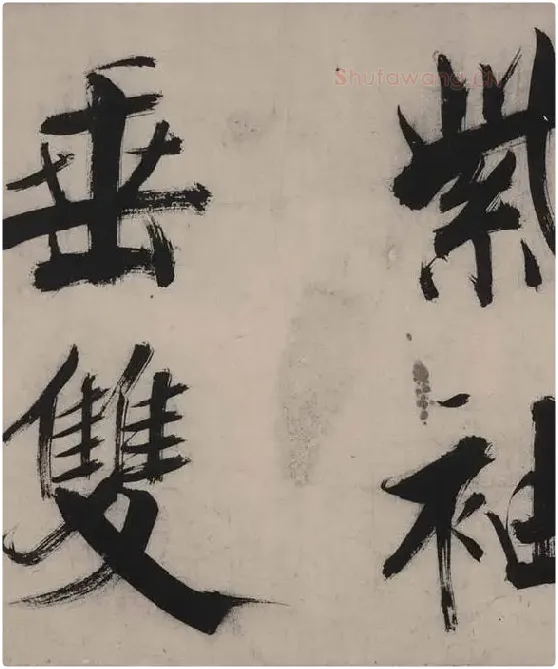 紫袖
垂雙
Shufawang.cn